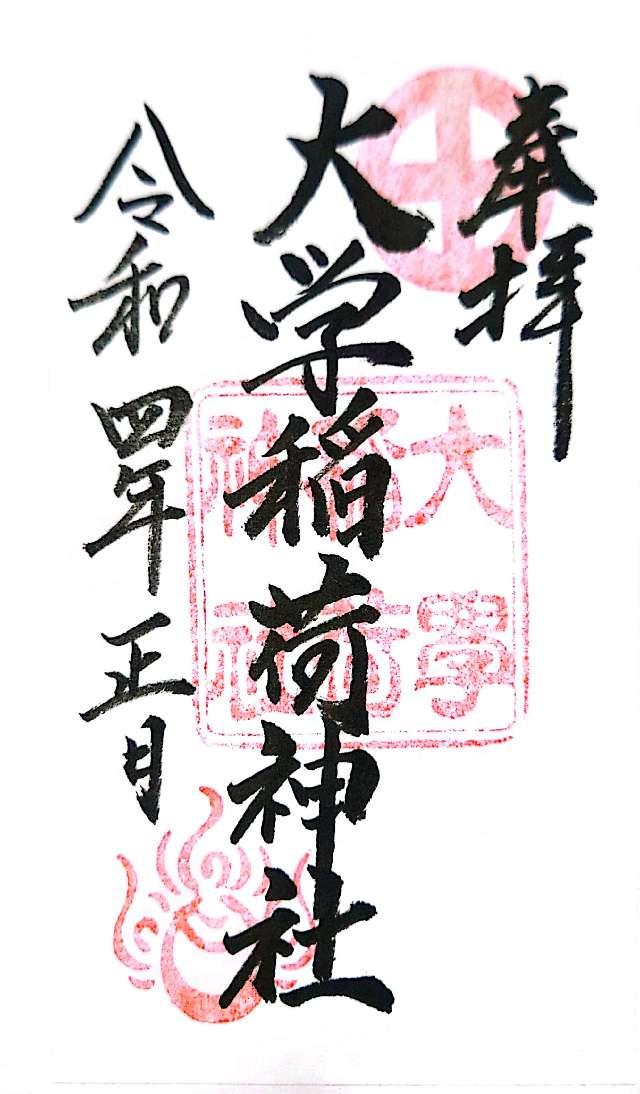 奉拝
大学稲荷神社
令和四年正月
大學
稲荷
神社